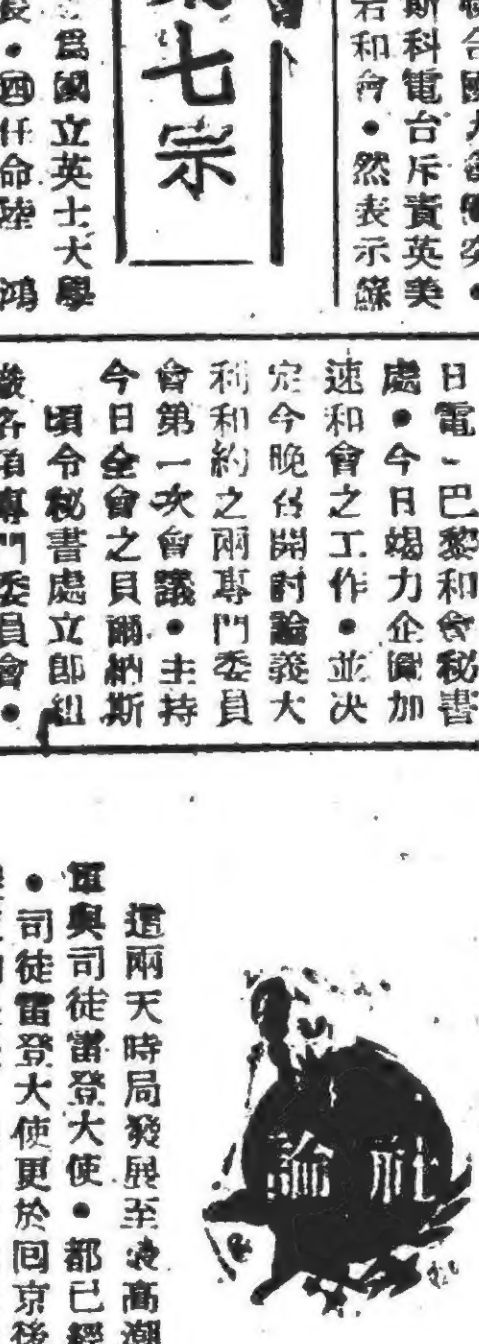 斯科電台斥責英美
若和會•然表示
七宗
為國立英士大學
•四任命陸 鴻
日電-巴黎和會秘書
處•今日竭力企圖加
速和會之工作•並決
定今晚召開討論義大
利和約之兩專門委員
會第一次會議•主持
今日全會之貝爾納斯
頃令秘書處立即組
織各項專門委員會•
社論
這兩天時局發展至最高潮
軍與司徒雷登大使•都已經
•司徒雷登大使更於回京後